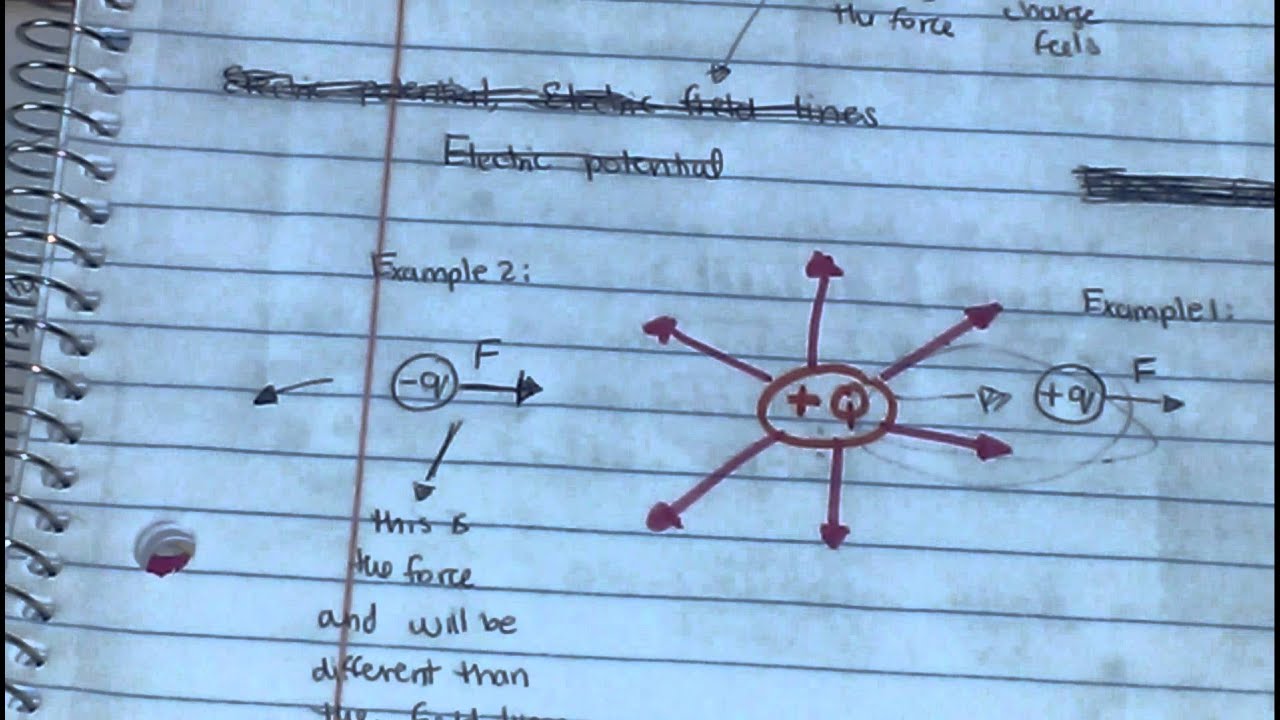 the force charge
feels
Electric potential, Electric field lines
Electric potential
Example 2:
Example 1:
F
-q
+Q
+q
F
this is
the force
and will be
different than
the field